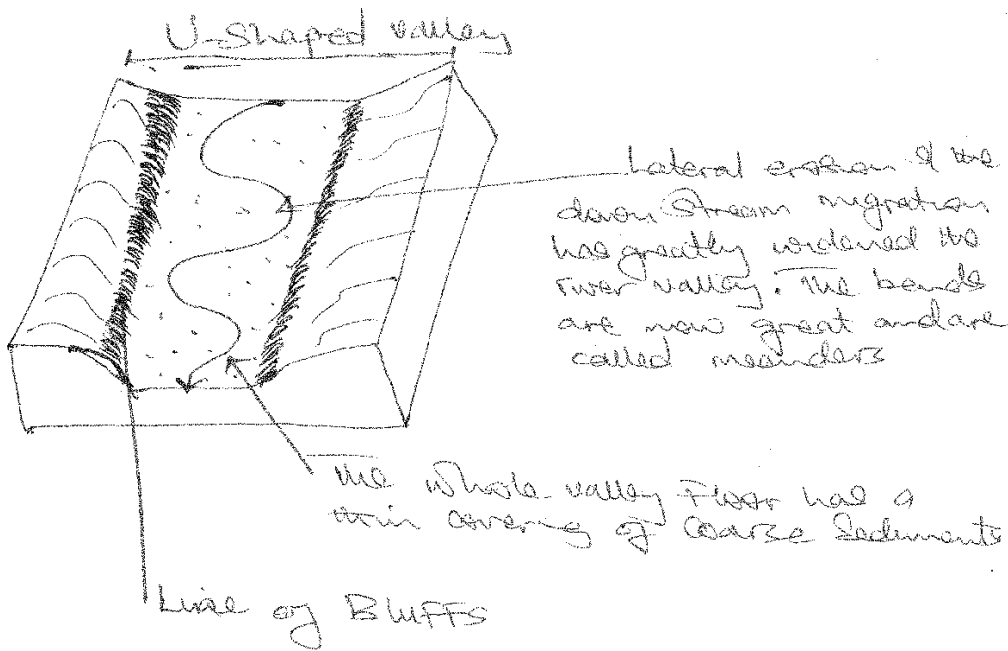 U-Shaped valley
Lateral erosion & the
down Stream migration
has greatly widened the
river valley. The bends
are now great and are
called meanders
The whole valley Floor has a
thin covering of Coarse Sediments
Line of BLUFFS